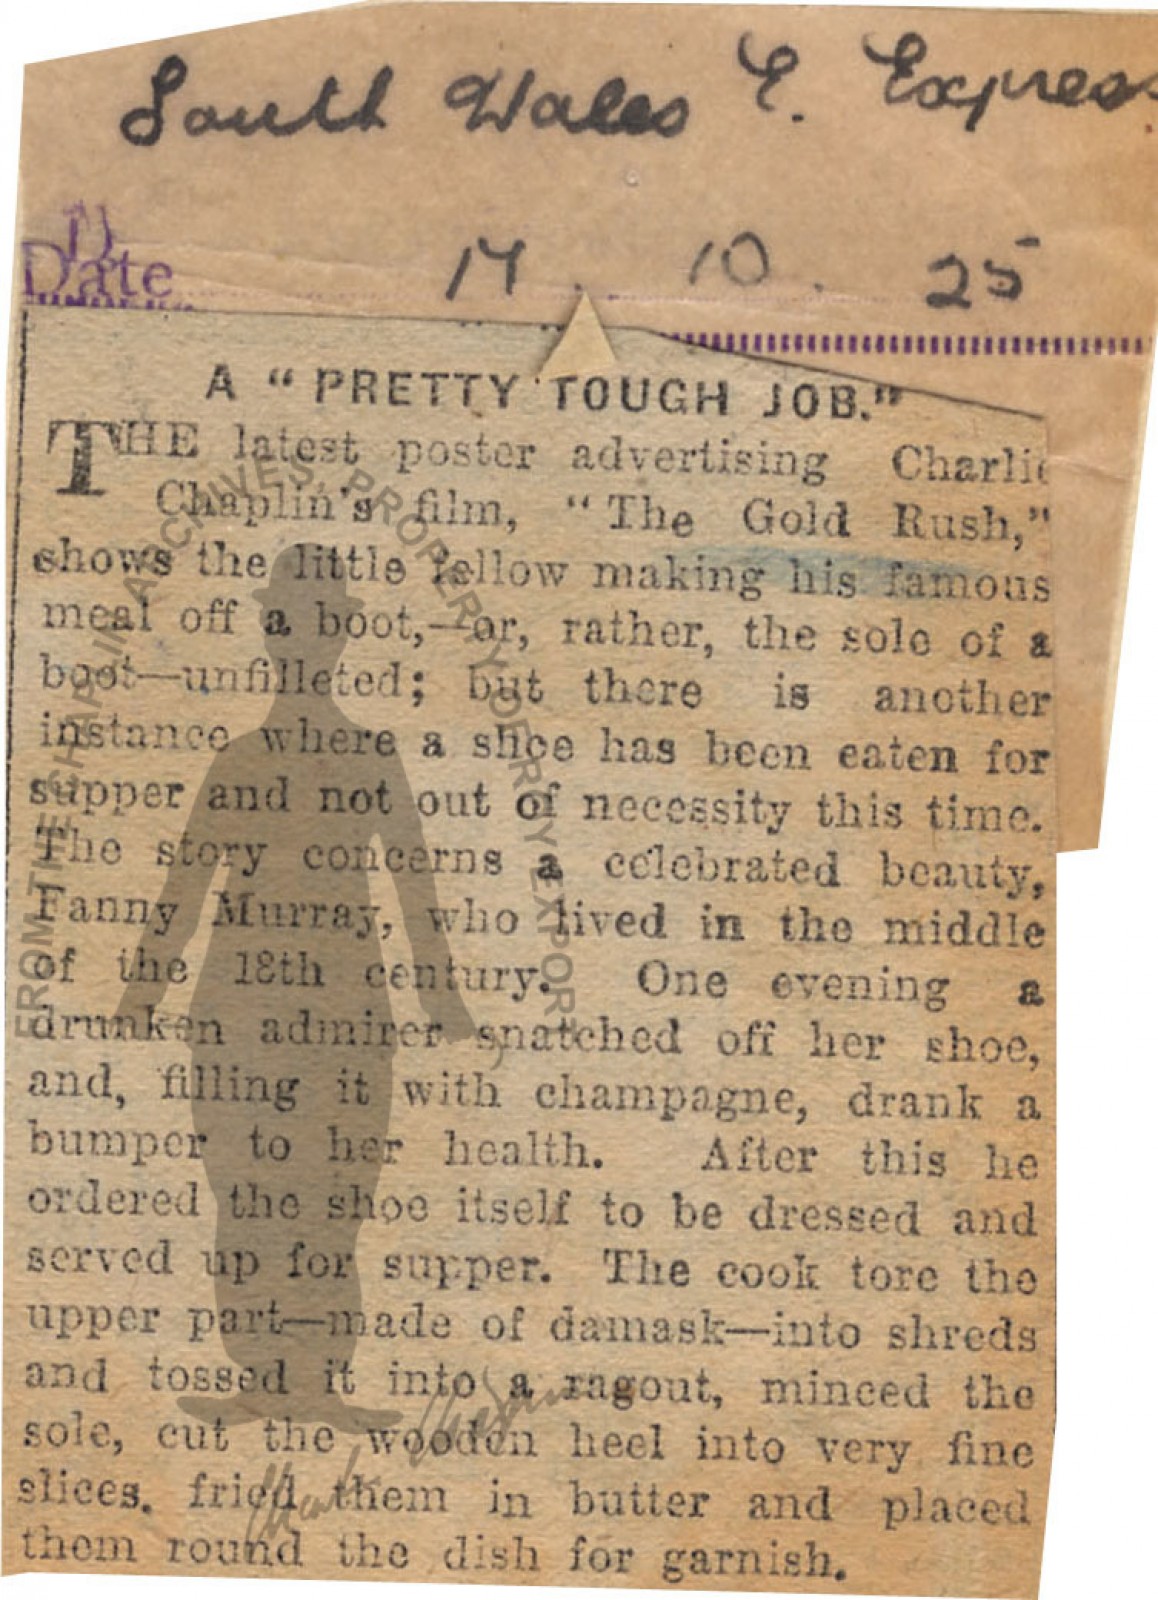 South Wales E. Express
Date 17. 10. 25
A “PRETTY TOUGH JOB.”
THE latest poster advertising Charlie
Chaplin's film, “The Gold Rush,”
shows the little fellow making his famous
meal off a boot,—or, rather, the sole of a
boot—unfilleted; but there is another
instance where a shoe has been eaten for
supper and not out of necessity this time.
The story concerns a celebrated beauty,
Fanny Murray, who lived in the middle
of the 18th century. One evening a
drunken admirer snatched off her shoe,
and, filling it with champagne, drank a
bumper to her health. After this he
ordered the shoe itself to be dressed and
served up for supper. The cook tore the
upper part—made of damask—into shreds
and tossed it into a ragout, minced the
sole, cut the wooden heel into very fine
slices, fried them in butter and placed
them round the dish for garnish.
FROM THE CHAPLIN ARCHIVES, PROPERTY OF ROY EXPORT
Charlie Chaplin